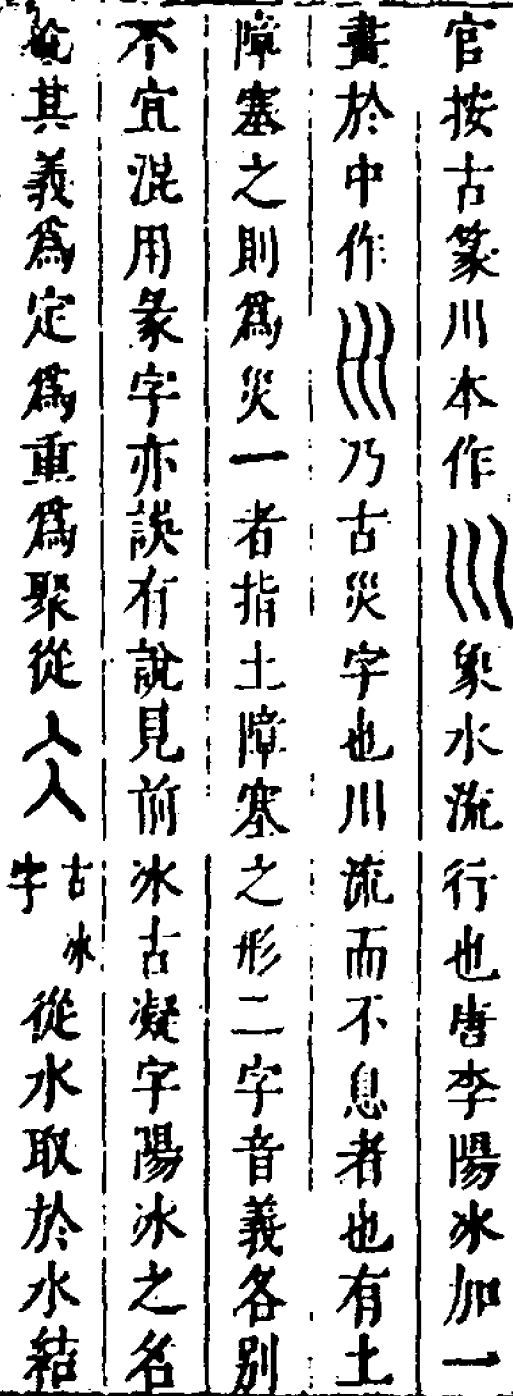 官按古篆川本作巛象水流行也唐李陽冰加一
畫於中作𡿧乃古災字也川流而不息者也有土
障塞之則為災一者指土障塞之形二字音義各別
不宜混用篆字亦誤有說見前冰古凝字陽冰之名
其義為定為重為聚從仌古冰字從水取於水結